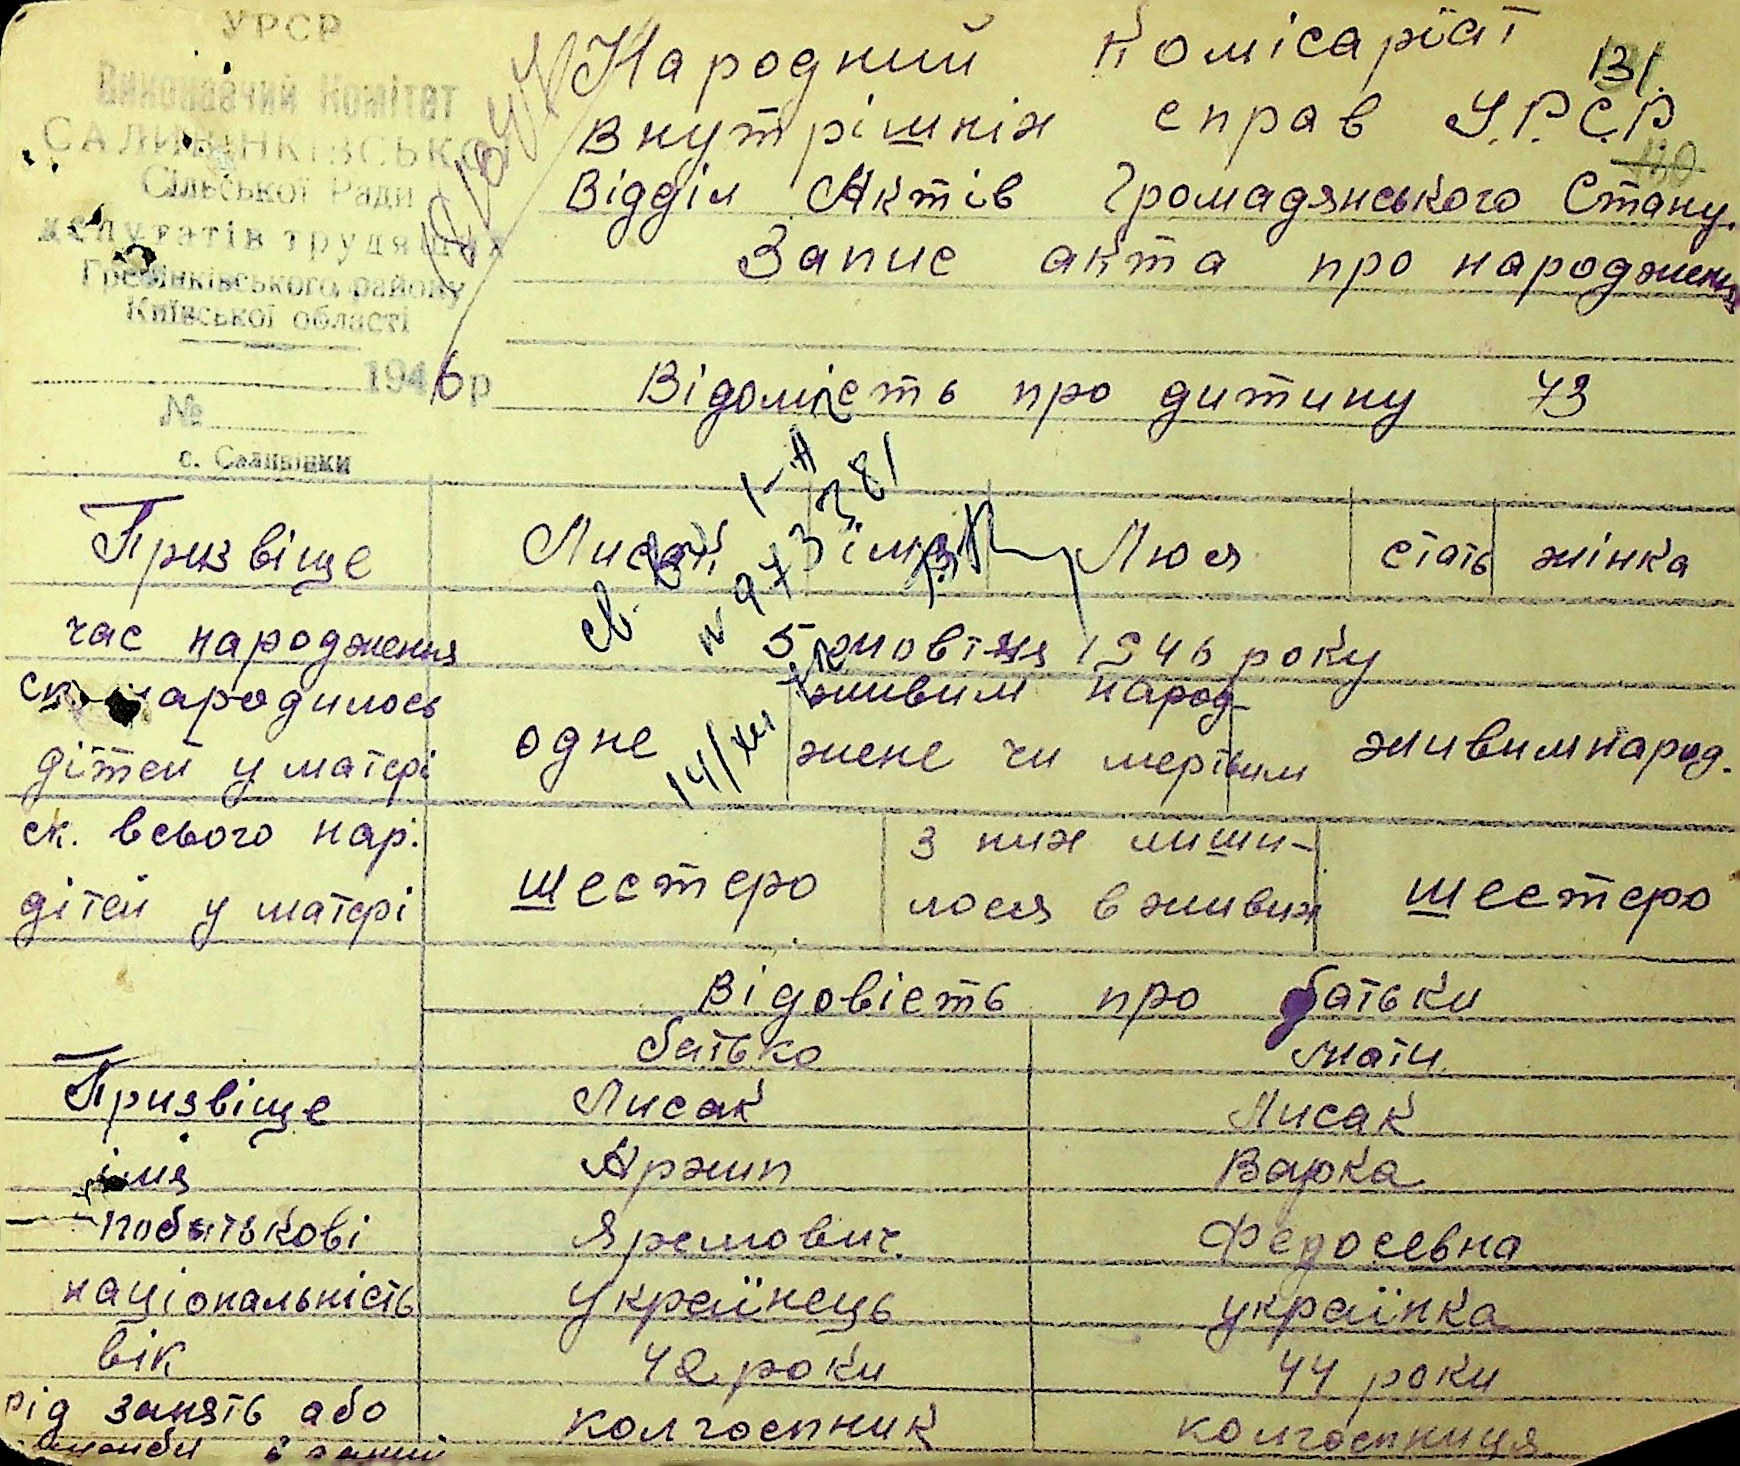 УРСР
Виконавчий Комітет
САЛИВІНКІВСЬКОЇ
Сільської Ради
депутатів трудящих
Гребінківського району
Київської області
1946р
№
с. Саливінки
Народний Комісаріат
131.
внутрішніх справ У.Р.С.Р
110
Відділ Актів Громадянського Стану.
Запис акта про народження
Відомість про дитину 73
Призвіще Лисак імя Люся стать жінка
час народження 5 жовтня 1946 року
ск. народилось
дітей у матері одне живим народ-
жене чи мертвим живимнарод.
ск. всього нар.
дітей у матері шестеро з них лиши-
лося в живих шестеро
Відовість про батьки
батько мати
Призвіще Лисак Лисак
імя Архип Варка
побатькові Яремович. Федосевна
національність українець українка
вік 42 роки 44 роки
рід занять або колгоспник колгоспниця